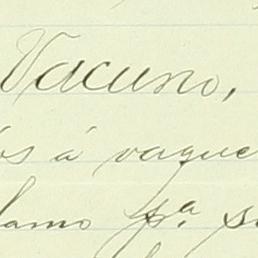 Vacuno,
os á vaque
lamo pª su